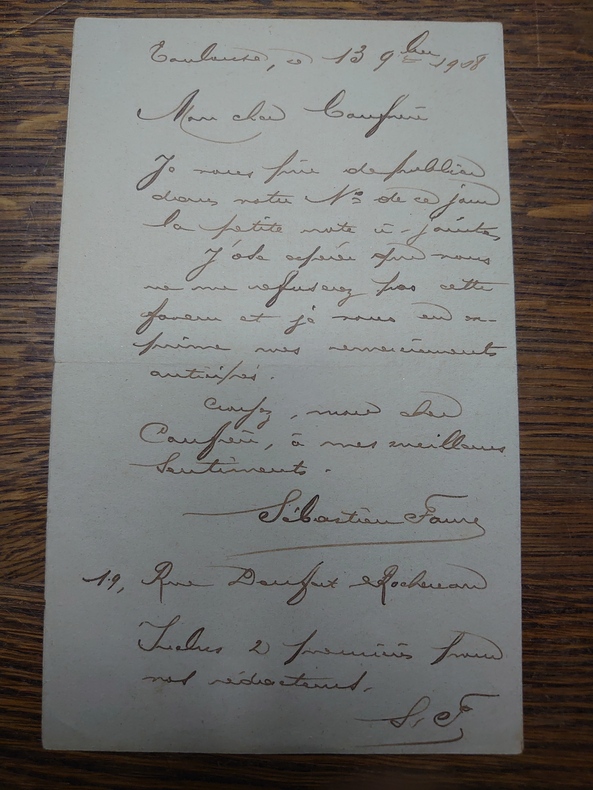 Toulouse, le 13 9bre 1908
Mon cher Confrère
Je vous prie de publier
dans votre No de ce jour
la petite note ci-jointe.
J'ose espérer que vous
ne me refuserez pas cette
faveur et je vous en ex-
prime mes remerciements
anticipés.
Croyez, mon cher
Confrère, à mes meilleurs
sentiments.
Sébastien Faure
19, Rue Denfert Rochereau
Inclus 2 premières pour
vos rédacteurs.
S. F